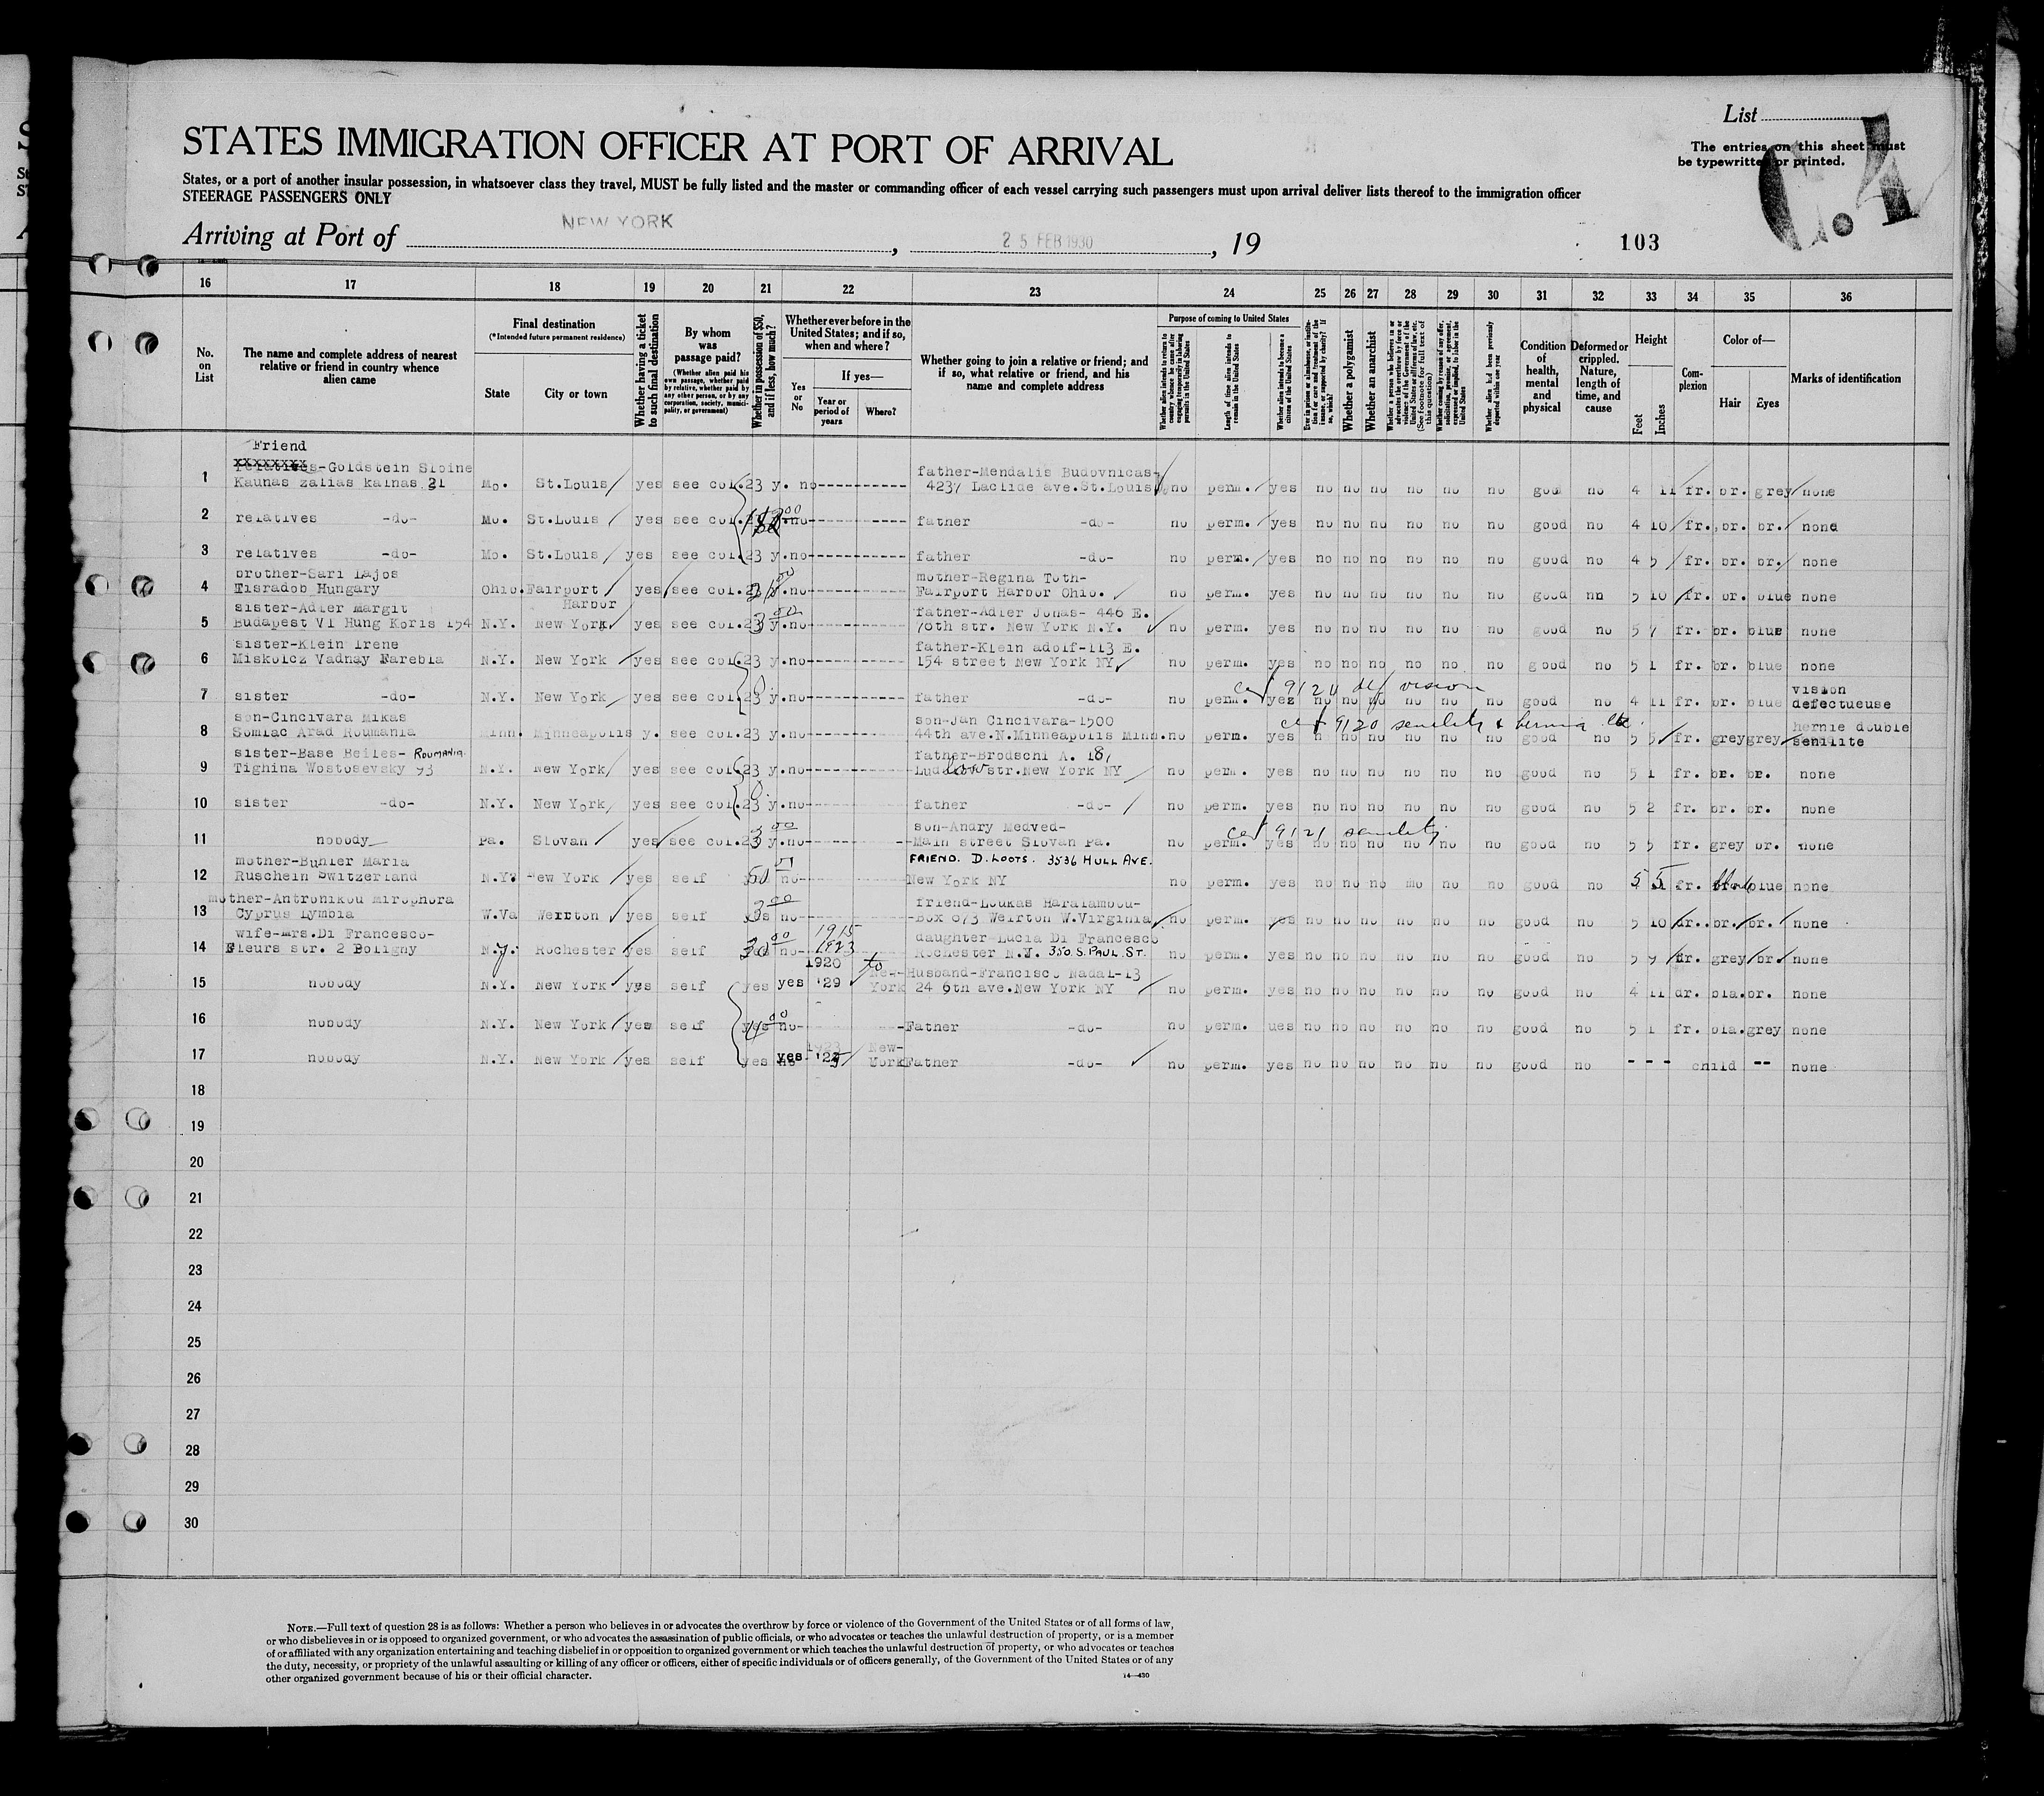 List
The entries on this sheet must
be typewritten or printed.
C.4
STATES IMMIGRATION OFFICER AT PORT OF ARRIVAL
States, or a port of another insular possession, in whatsoever class they travel, MUST be fully listed and the master or commanding officer of each vessel carrying such passengers must upon arrival deliver lists thereof to the immigration officer
STEERAGE PASSENGERS ONLY
Arriving at Port of NEW YORK, 25 FEB 1930, 19
103
16 17 18 19 20 21 22 23 24 25 26 27 28 29 30 31 32 33 34 35 36
No. on List
The name and complete address of nearest relative or friend in country whence alien came
Final destination
(*Intended future permanent residence)
State
City or town
Whether having a ticket to such final destination
By whom was passage paid?
(Whether alien paid his own passage, whether paid by relative, whether paid by any other person, or by any corporation, society, municipality, or government)
Whether in possession of $50, and if less, how much?
Whether ever before in the United States; and if so, when and where?
Yes or No
If yes—
Year or period of years
Where?
Whether going to join a relative or friend; and if so, what relative or friend, and his name and complete address
Purpose of coming to United States
Length of time alien intends to remain in the United States
Whether alien intends to become a citizen of the United States
Whether a polygamist
Whether an anarchist
Condition of health, mental and physical
Deformed or crippled. Nature, length of time, and cause
Height
Feet
Inches
Complexion
Color of—
Hair
Eyes
Marks of identification
Friend
1 relatives-Goldstein Sloine
Kaunas zalias kalnas 21 Mo. St.Louis yes see col.23 y. no father-Mendalis Budovnicas-
4237 Laclide ave.St.Louis no perm. yes no no no no no no good no 4 11 fr. br. grey none
2 relatives -do- Mo. St.Louis yes see col. no father -do- no perm. yes no no no no no no good no 4 10 fr. br. br. none
3 relatives -do- Mo. St.Louis yes see col.23 y.no father -do- no perm. yes no no no no no no good no 4 5 fr. br. br. none
4 brother-Sari Lajos
Tisradob Hungary Ohio. Fairport Harbor yes see col. y.no mother-Regina Toth-
Fairport Harbor Ohio. no perm. yes no no no no no no good nn 5 10 fr. br. blue none
5 sister-Adler Margit
Budapest VI Hung Koris 154 N.Y. New York yes see col.23 y.no father-Adler Jonas- 446 E.
78th str. New York N.Y. no perm. yes no no no no no no good no 5 7 fr. br. blue none
6 sister-Klein Irene
Miskolcz Vadnay Farebla N.Y. New York yes see col.23 y.no father-Klein adolf-113 E.
154 street New York NY no perm. yes no no no no no no good no 5 1 fr. br. blue none
cert 9120 def vision
7 sister -do- N.Y. New York yes see col.23 y.no father -do- no perm. yes no no no no no no good no 4 11 fr. br. blue vision
defectueuse
cert 9120 senility & hernia
8 son-Cincivara Mikas
Somlac Arad Roumania Minn. Minneapolis y. see col.23 y.no son-Jan Cincivara-1500
44th ave.N.Minneapolis Minn. no perm. yes n no no no no no good no 5 5 fr. grey grey hernie double
senilite
9 sister-Base Beiles- ROUMANIA
Tighina Wostosevsky 93 N.Y. New York yes see col.23 y.no father-Brodschi A. 181
Ludlow str.New York NY no perm. yes no no no no no no good no 5 1 fr. br. br. none
10 sister -do- N.Y. New York yes see col.23 y.no father -do- no perm. yes no no no no no no good no 5 2 fr. br. br. none
cert 9121 senility
11 nobody Pa. Slovan yes see col.23 y.no son-Andry Medved-
Main street Slovan Pa. no perm. yes no no no no no no good no 5 5 fr. grey br. none
12 mother-Buhler Maria
Ruschein Switzerland N.Y. New York yes self 50 no FRIEND. D. LOOTS. 3536 HULL AVE.
New York NY no perm. yes no no no mo no no good no 5 5 fr. blue none
13 mother-Antronikou Mirophora
Cyprus Lymbia W.Va Weirton yes self no friend-Loukas Haralambou-
Box 673 Weirton W.Virginia no perm. yes no no no no no no good no 5 10 dr. br. br. none
14 wife-mrs.Di Francesco-
Fleurs str. 2 Boligny N.Y. Rochester yes self 30 no 1915
1923 daughter-Lucia Di Francesco
Rochester N.Y. 350 S. PAUL ST. no perm. yes no no no no no no good no 5 9 dr. grey br. none
15 nobody N.Y. New York yes self yes yes 1920 to
'29 New-York Husband-Francisco Nadal-13
24 6th ave.New York NY no perm. yes no no no no no no good no 4 11 dr. bla. br. none
16 nobody N.Y. New York yes self no Father -do- no perm. ues no no no no no no good no 5 1 fr. bla. grey none
17 nobody N.Y. New York yes self yes yes 1923 New-
Father -do- no perm. yes no no no no no no good no --- child -- none
18
19
20
21
22
23
24
25
26
27
28
29
30
NOTE.—Full text of question 28 is as follows: Whether a person who believes in or advocates the overthrow by force or violence of the Government of the United States or of all forms of law,
or who disbelieves in or is opposed to organized government, or who advocates the assassination of public officials, or who advocates or teaches the unlawful destruction of property, or is a member
of or affiliated with any organization entertaining and teaching disbelief in or opposition to organized government or which teaches the unlawful destruction of property, or who advocates or teaches
the duty, necessity, or propriety of the unlawful assaulting or killing of any officer or officers, either of specific individuals or of officers generally, of the Government of the United States or of any
other organized government because of his or their official character.
14—430